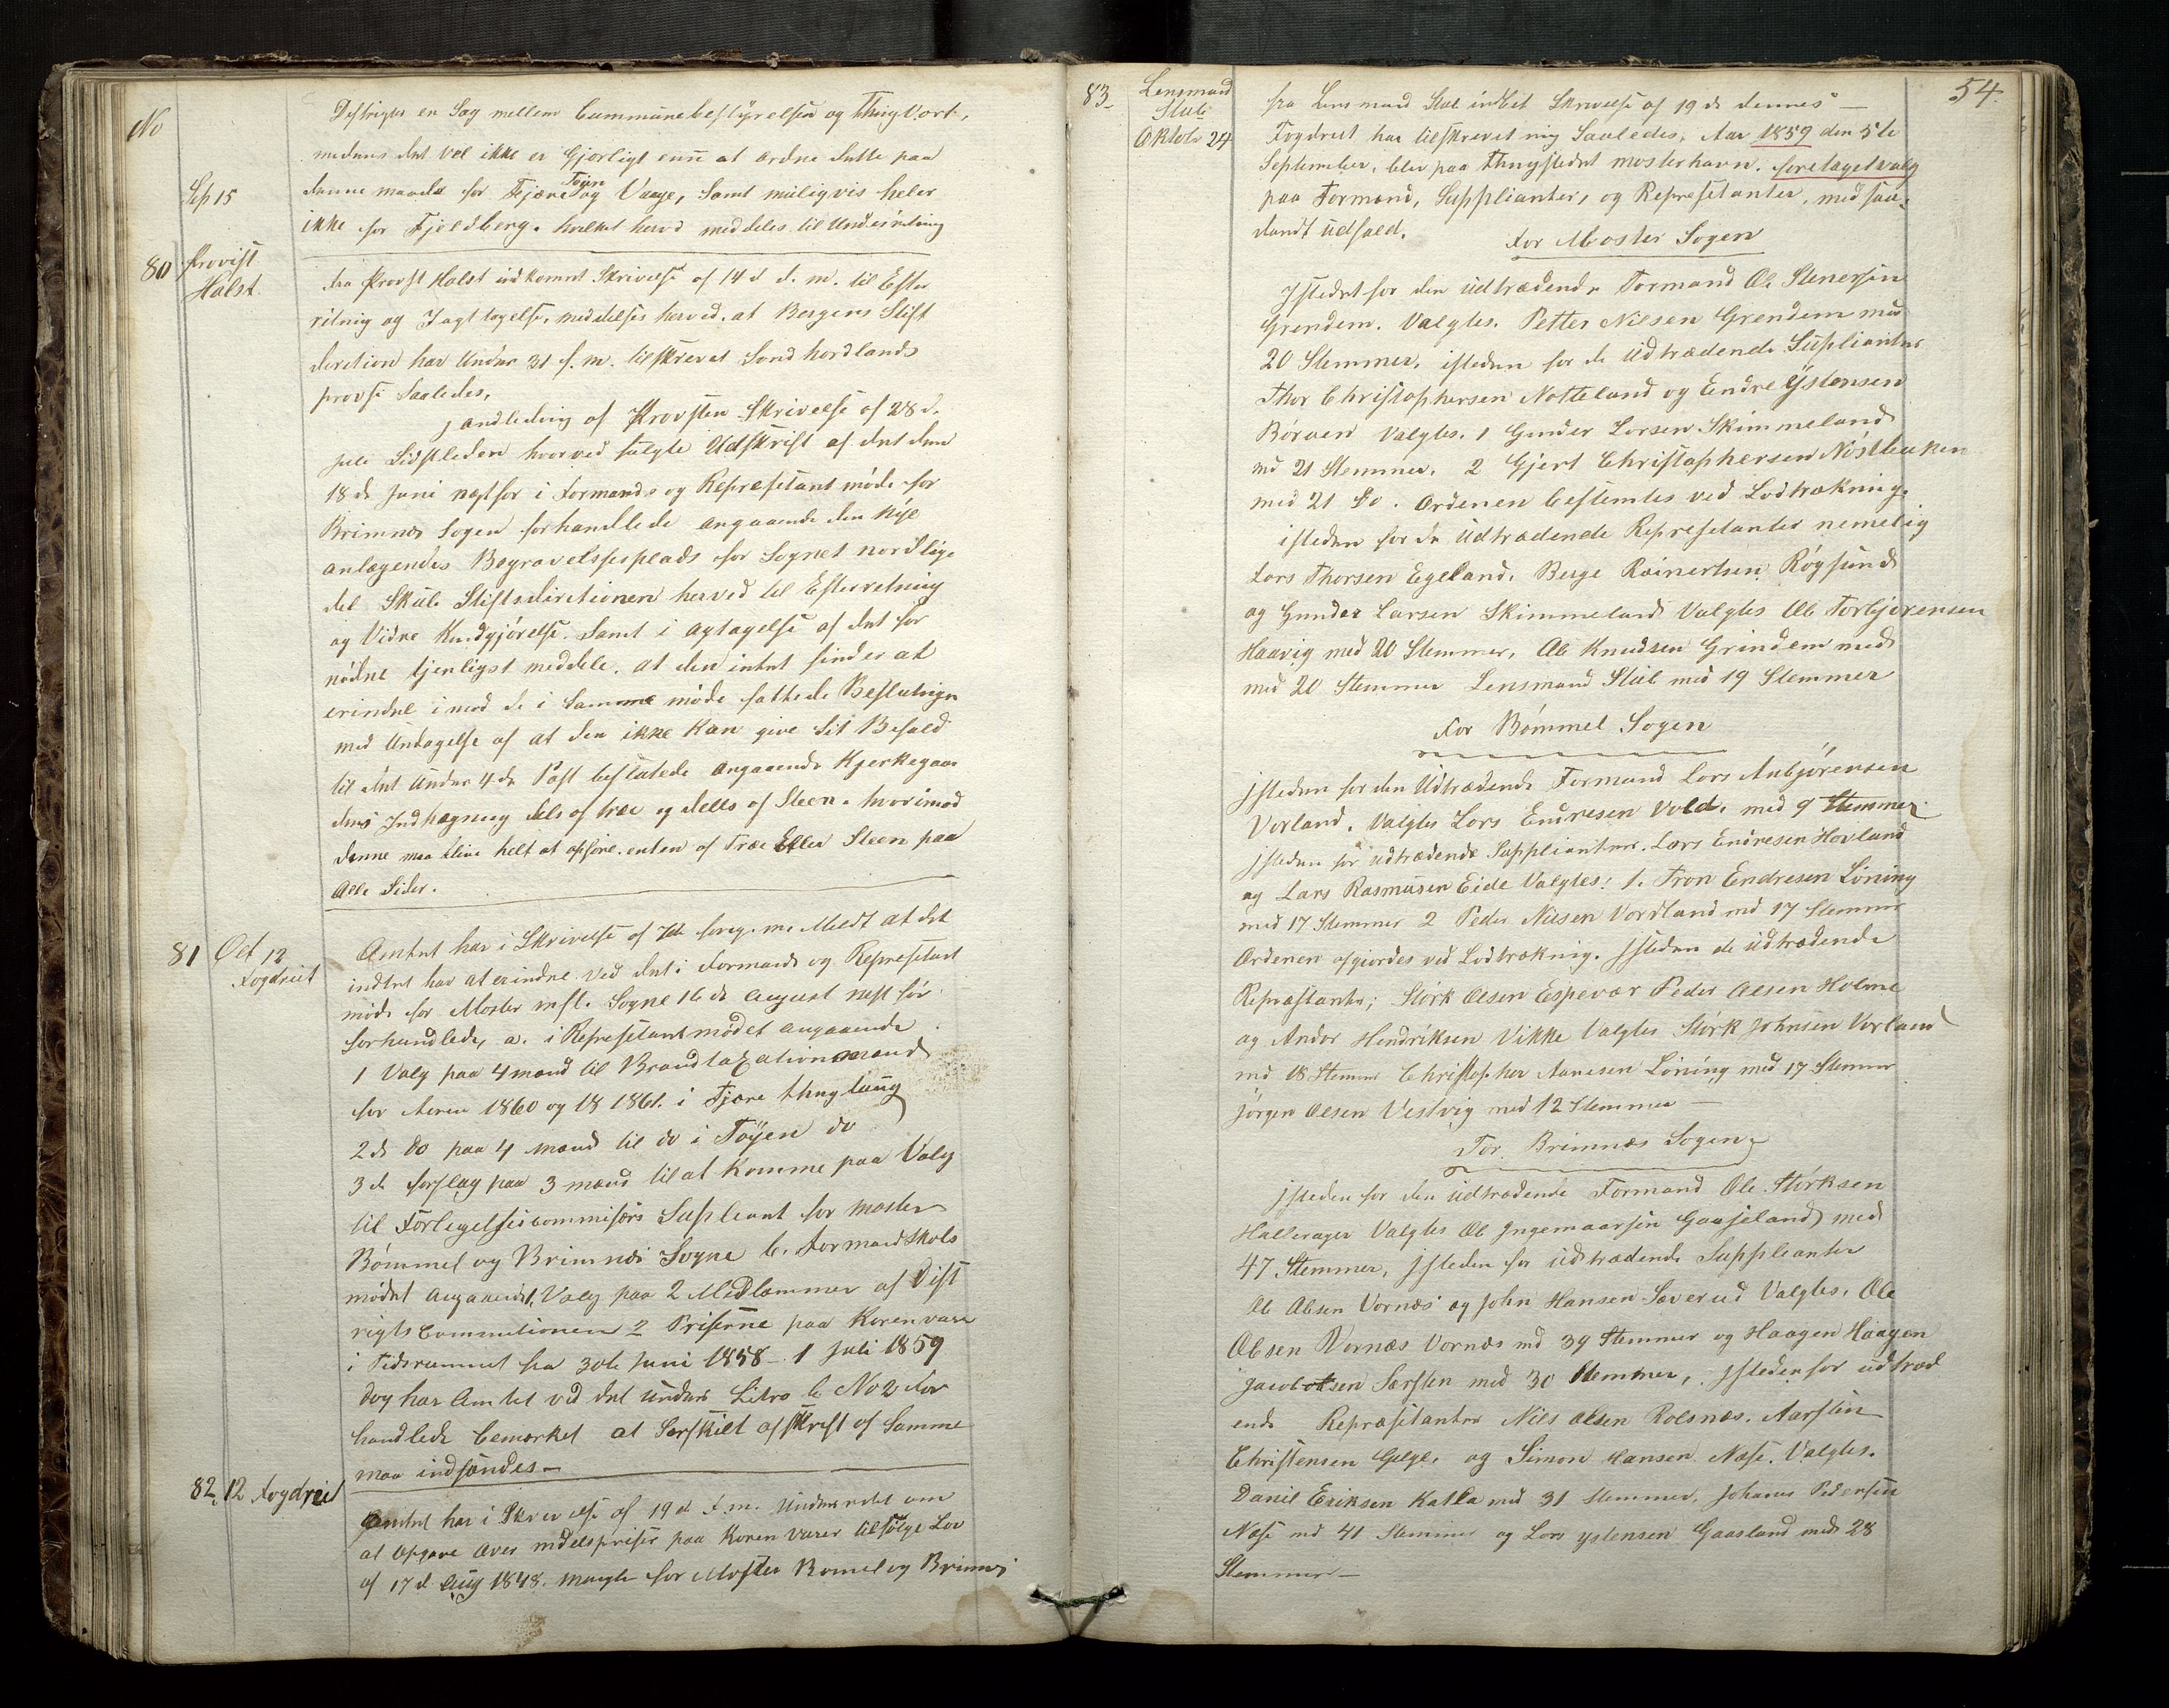 No
Destrigts en Sag mellem Communebestyrelsen og Thinget
medens det vel ikke er Gjørligt enn at ordne dette paa
Sep 15
denne maade for Fjære Føyn og Vaage, samt muligvis heler
ikke for Fjeldberg. hvilket herved meddeles til Underretning
80 Provst Holst
fra Provst Holst indkomet Skrivelse af 14 d. d. m. til Efter
ritnig og Jagttagelse, meddelses herved, at Bergens Stift
diretion har Under 31 f. m. tilskrevet Søndhordlands
provsti Saaledes,
J andledning af Provsten Skrivelse af 28 d.
Juli Sidstleden hvorved fulgte Udskrift af det den
18 de Juni næstfør i Formands og Represetant møde for
Brimnæs Sogen forhandlede angaaende den nye
anlægendes Begravelsesplads for Sognet nordlige
del Skule Stiftsdiretionen herved til Efterretning
og Vidre Kundgjørelse. Samt i agtagelse af det for
nødne tjenligst meddele. at den intet finder at
erindre imod de i Samme møde fattede Beslutnigr
med Undtagelse af at den ikke Kan give sit Befald
til det Under 4 de Post besluttede angaaende Kjerkegaar
dens Indhægning dels af træ og dells af Steen. hvorimod
denne maa blive helt at opføre enten af Træ Eller Steen paa
Alle Sider.
81 Oct 12 Fogdriet
Amtet har i Skrivelse af 7de foreg. m. Meldt at det
indtet har at erindre ved det i Formands og Represetant
møde for Moster mfl. Sogne 16 de august nest før
forhandlede, a. i Represetantmødet angaaende
1 Valg paa 4 mand til Brandtaxationsmænd
for Aaren 1860 og 18 1861. i Fjære thinglaug
2 de do paa 4 mand til do i Føyen do
3 de forslag paa 3 mænd til at Komme paa Valg
til Forligelsescommisærs Supleant for moster
Bømmel og Brimnæs Sogne b. Formandskabs
mødet angaaende, Valg paa 2 Medlemmer af Dist
rigts Commitionen 2 Priserne paa Korenvare
i Tidsrummet fra 30te Juni 1858 - 1 Juli 1859
dog har Amtet ved det under Litra b No 2 For
handlede bemærket at Særskilt afskrift af Samme
maa indsendes —
82, 12 Fogdriet
Amtet har i Skrivelse af 19 d. f. m. Underrettet om
at Opgave over medelspriser paa Koren Varer tilfølge Lov
af 17 d. Aug 1848. mangler for Moster Bomel og Brimnæs
54.
83. Lensmand Stub Oktobr 24
fra Lensmand Stub indbet Skrivelse af 19 de dennes —
Fogdriet har tilskrevet mig Saaledes, Aar 1859 den 5te
September, blev paa thingstedet mosterhavn, foretaget valg
paa Formand, Supplianter, og Represetanter, med saa-
dandt udfald.
For Moster Sogen
Jstedet for den udtrædende Formand Ole Stenersen
Grendem. Valgtes. Petter Nilsen Grendem med
20 Stemmer, isteden for de Udtrædende Suplianter
Thor Christophersen Notteland og Endre Ystensen
Børøen Valgtes. 1 Gunder Larsen Skimmeland
md 21 Stemmer. 2 Gjert Christophersen Nøstbakken
med 21 do. Ordenen bestemtes ved Lodtrækning.
isteden for de Udtrædende Represetanter nemelig
Lars Thorsen Egeland. Berge Reinertsen Røgsund
og Gunder Larsen Skimmeland Valgtes Ole Torbjørensen
Haavig med 20 Stemmer, Ole Knudsen Grindem med
med 20 Stemmer Lensmand Stub med 19 Stemmer
For Bømmel Sogen
jsteden for den Udtrædende Formand Lars Anbjørensen
Vorland. Valgtes Lars Endresen Vold. med 9 Stemmer
jsteden for udtrædende Suppliantere. Lars Endresen Hovland
og Lars Rasmusen Eide Valgtes: 1. Tron Endresen Løning
med 17 Stemmer 2 Peder Nilsen Vordland md 17 Stemmer
Ordenen afgiordes ved Lodtræknig. Jsteden de udtrædende
Represtanter; Størk Olsen Espevær Peder Olsen Holme
og Andor Hendriksen Vikke Valgtes Størk Johnsen Vorland
md 18 Stemmer Christopher Aanesen Løning med 17 Stemmer
Jørgen Olsen Vestvig med 12 Stemmer —
For Brimnæs Sogen
jsteden for den udtrædende Formand Ole Størksen
Hallerager Valgtes Ole Jngemaarsen Gaaseland med
47 Stemmer, jsteden for udtrædende Suppleanter
Ole Olsen Vornæs og John Hansen Saverud Valgtes. Ole
Olsen Vornæs Vornæs md 39 Stemmer og Haagen Haagen
Jacobsen Særsten med 30 Stemmer, jstedenfor udtræd
ende Represetanter Nils Olsen Rolsnæs. Aarslin
Christensen Gelge. og Simon Hansen Næse. Valgtes.
Daniel Eriksen Katla med 31 Stemmer, Johanes Pedersen
Næse md 41 Stemmer og Lars ystensen Gaasland med 28
Stemmer —